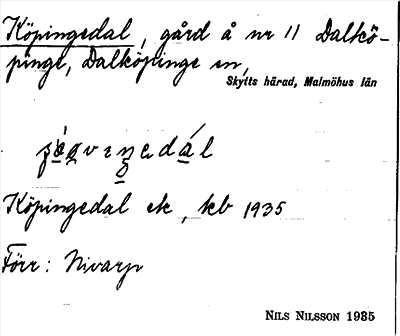 Köpingedal, gård å nr 11 Dalkö-
pinge, Dalköpinge sn,
Skytts härad, Malmöhus län
Köpingedal ek, kb 1935
Förr: Nivarp
NILS NILSSON 1935